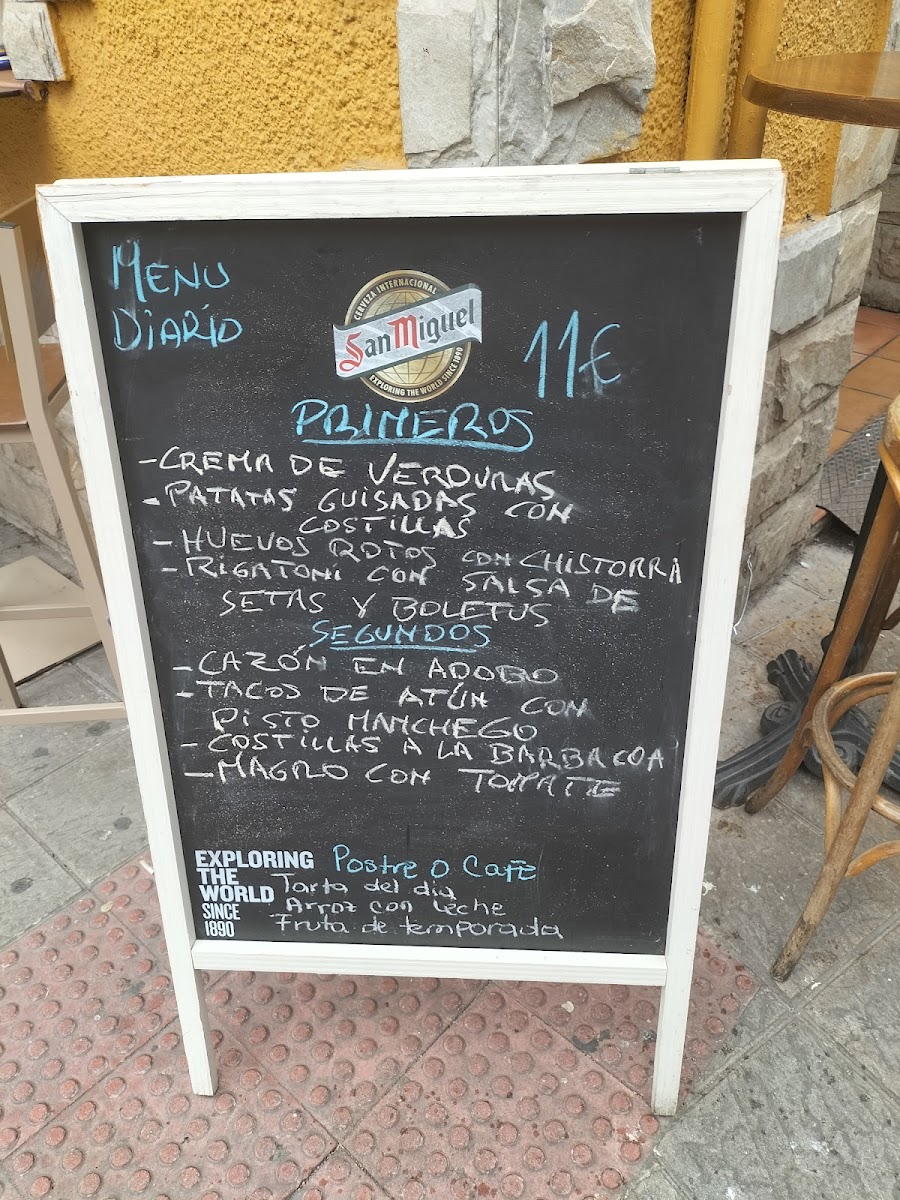 MENU
DiARiO
CERVEZA INTERNACIONAL
San Miguel
EXPLORING THE WORLD SINCE 1890
11€
PRIMEROS
-CREMA DE VERDURAS
-PATATAS GUISADAS CON
COSTILLAS
-HUEVOS ROTOS CON CHISTORRA
-RIGATONI CON SALSA DE
SETAS Y BOLETUS
SEGUNDOS
-CAZÓN EN ADOBO
-TACOS DE ATÚN CON
PISTO MANCHEGO
-COSTILLAS A LA BARBACOA
-MAGRO CON TOMATE
EXPLORING
THE
WORLD
SINCE
1890
Postre o Café
Tarta del dia
Arroz con leche
Fruta de temporada